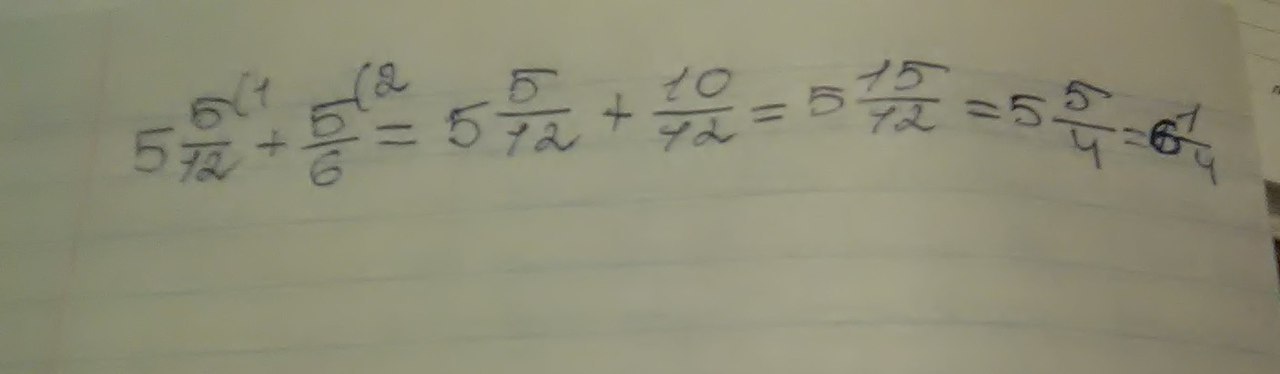 5 5/12 (1 + 5/6 (2 = 5 5/12 + 10/12 = 5 15/12 = 5 5/4 = 6 1/4